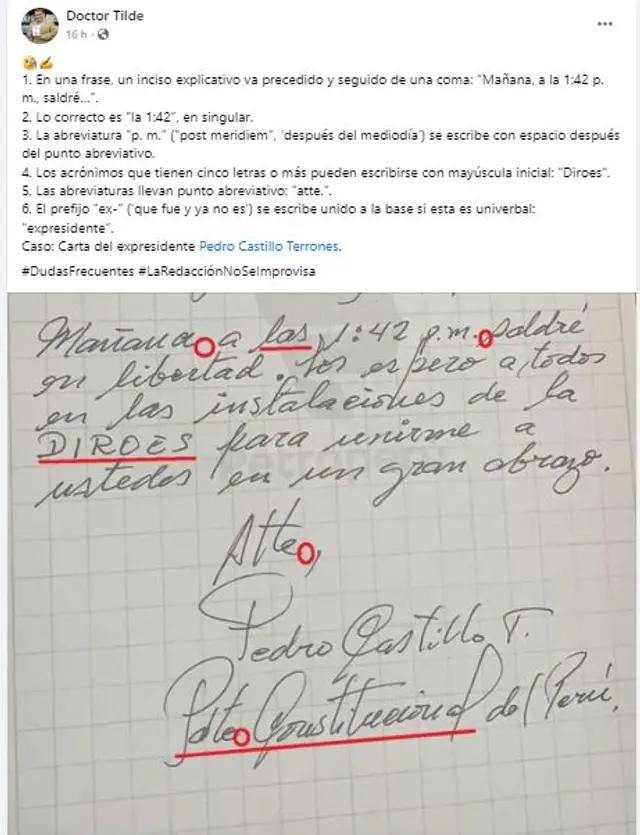 Doctor Tilde
16 h ·
1. En una frase, un inciso explicativo va precedido y seguido de una coma: “Mañana, a la 1:42 p.
m., saldré...”.
2. Lo correcto es “la 1:42”, en singular.
3. La abreviatura “p. m.” (“post meridiem”, ‘después del mediodía’) se escribe con espacio después
del punto abreviativo.
4. Los acrónimos que tienen cinco letras o más pueden escribirse con mayúscula inicial: “Diroes”.
5. Las abreviaturas llevan punto abreviativo: “atte.”.
6. El prefijo “ex-” (‘que fue y ya no es’) se escribe unido a la base si esta es univerbal:
“expresidente”.
Caso: Carta del expresidente Pedro Castillo Terrones.
#DudasFrecuentes #LaRedacciónNoSeImprovisa
Mañana a las 1:42 p.m. saldré
en libertad. Los espero a todos
en las instalaciones de la
DIROES para unirme a
ustedes en un gran abrazo.
Atte,
Pedro Castillo T.
Pdte Constitucional del Perú.